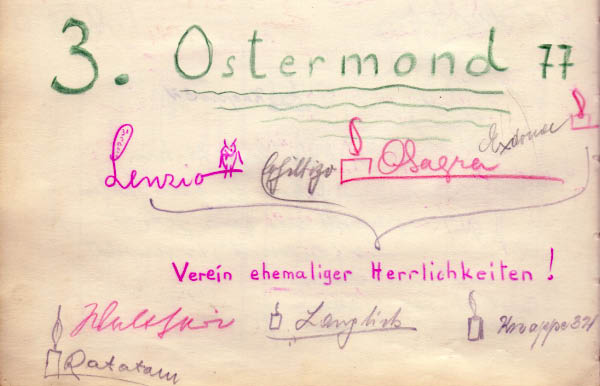 3. Ostermond 77
Lenzio Schiltizo Osagra Exdonae
Verein ehemaliger Herrlichkeiten!
Langlich Knappe 321
Ratatam